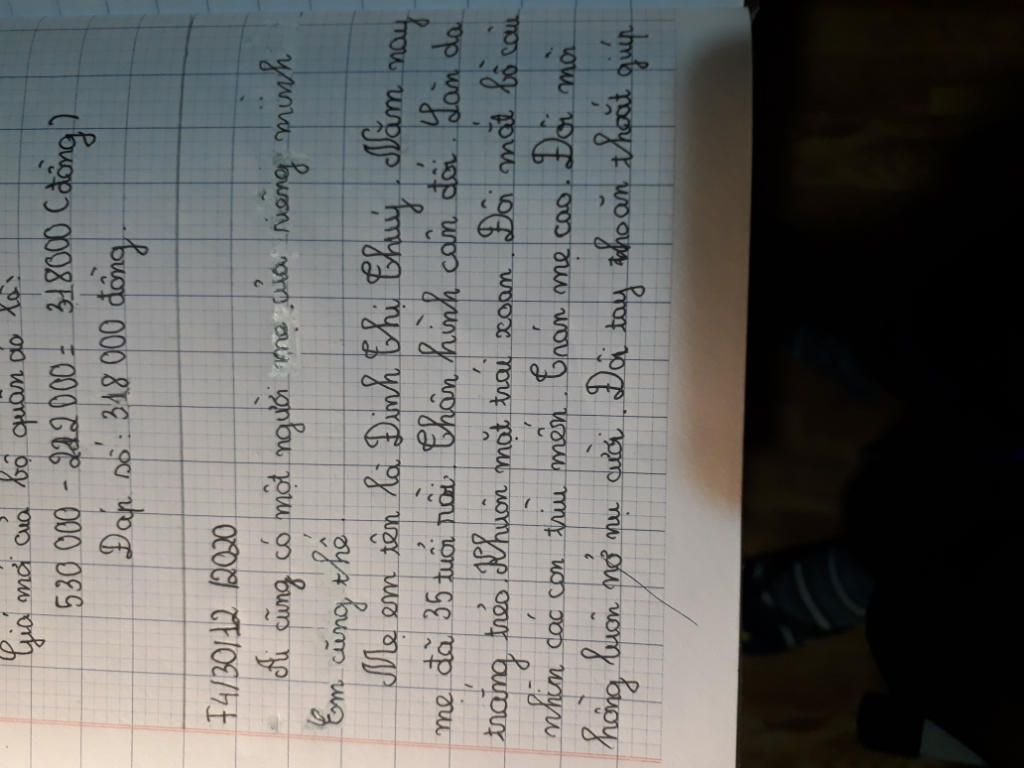 Giá mới của bộ quần áo là:
530 000 - 212 000 = 318000 (đồng)
Đáp số: 318 000 đồng.
T4/30/12/2020
Ai cũng có một người mẹ của riêng mình
Em cũng thế.
Mẹ em tên là Đinh Thị Thuý. Năm nay
mẹ đã 35 tuổi rồi. Thân hình cân đối. Làn da
trắng trẻo. Khuôn mặt trái xoan. Đôi mắt bồ câu
nhìn các con trìu mến. Trán mẹ cao. Đôi môi
hồng luôn nở nụ cười. Đôi tay thoăn thoắt giúp